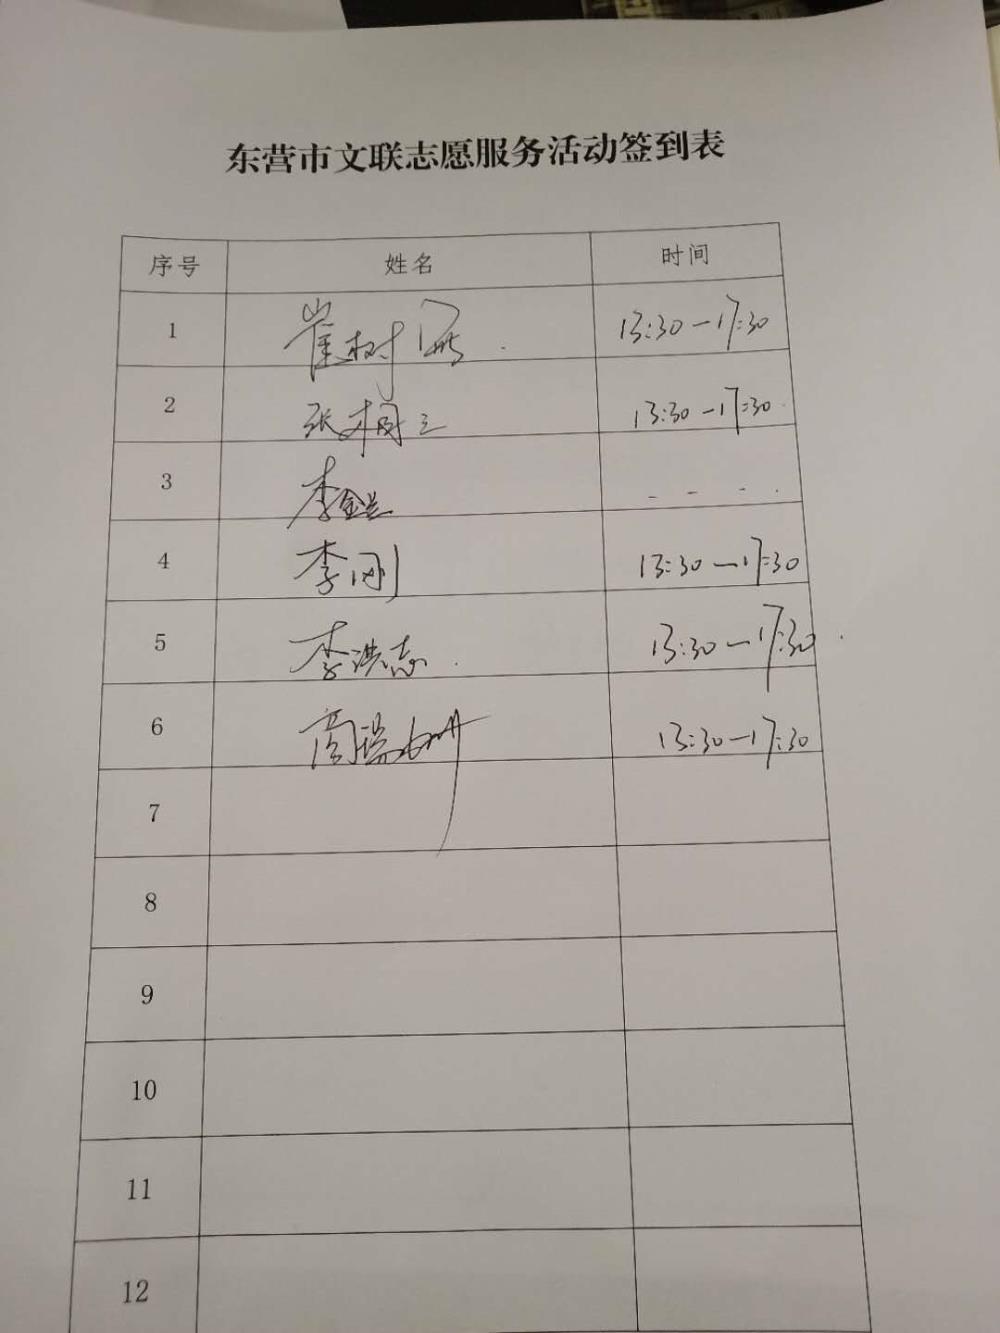 东营市文联志愿服务活动签到表
序号 姓名 时间
1 崔树 13:30—17:30
2 张 13:30—17:30
3 李金 - - - .
4 李刚 13:30—17:30
5 李洪志 13:30—17:30
6 瑞 13:30—17:30
7
8
9
10
11
12